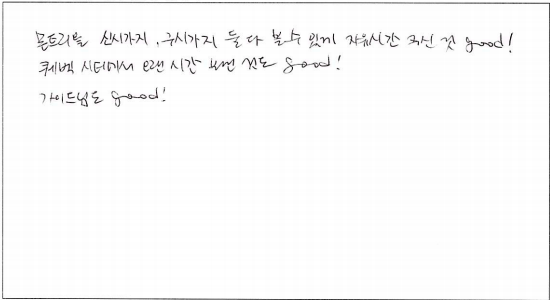 몬트리올 신시가지, 구시가지 둘 다 볼 수 있게 자유시간 주신 것 good!
퀘벡 시티에서 오랜 시간 보낸 것도 good!
가이드님도 good!